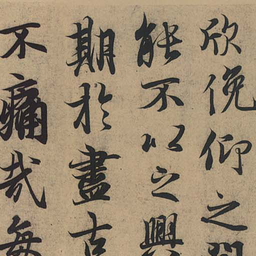 欣俛仰之間
能不以之興
期於盡古
不痛哉每